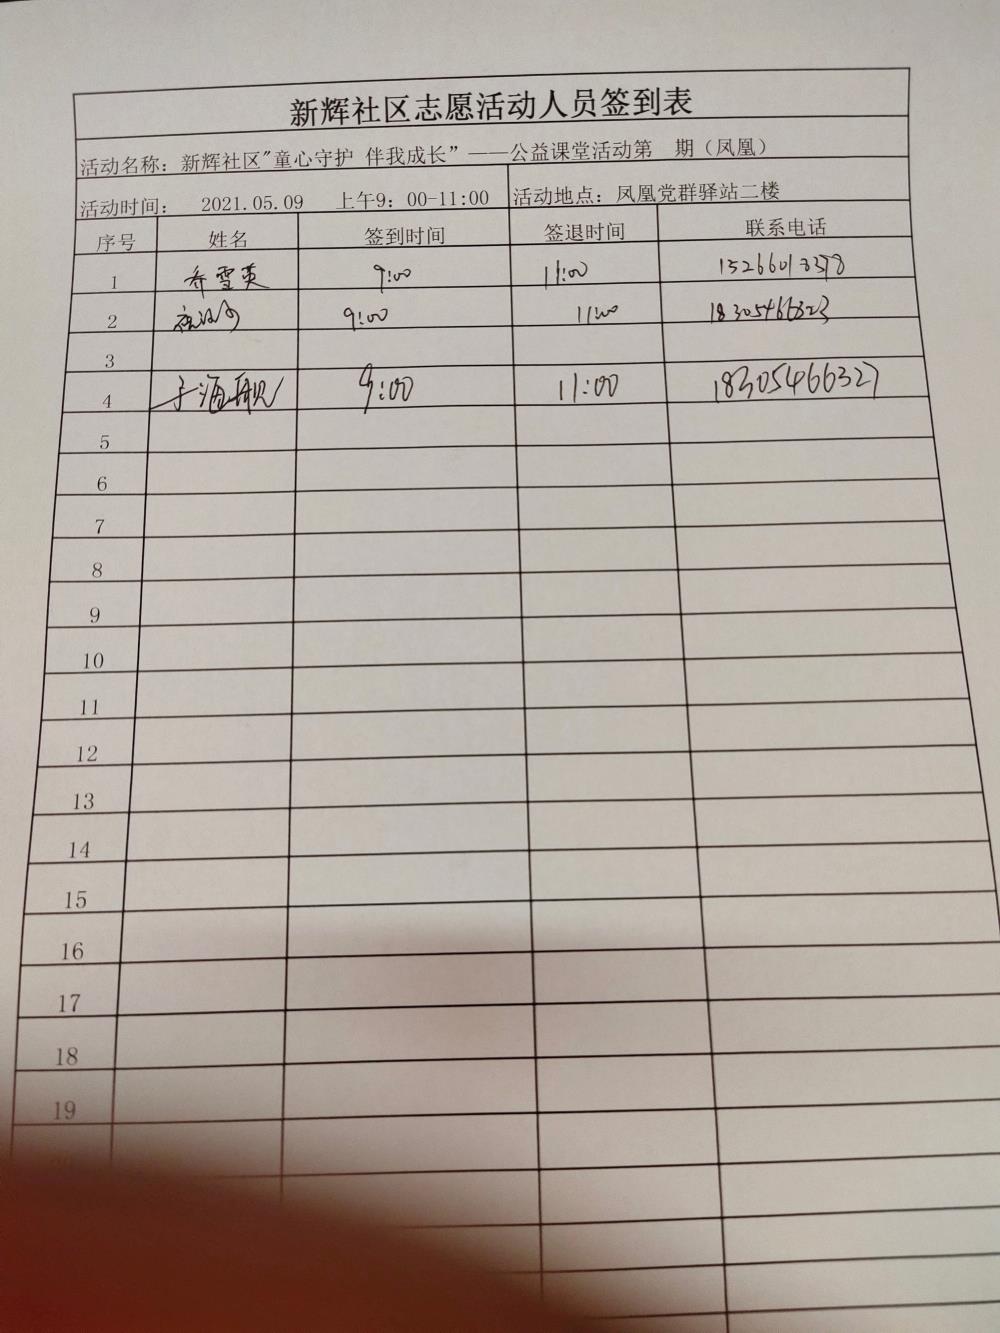 新辉社区志愿活动人员签到表
活动名称：新辉社区"童心守护 伴我成长”——公益课堂活动第 期（凤凰）
活动时间： 2021.05.09 上午9：00-11:00 活动地点：凤凰党群驿站二楼
序号 姓名 签到时间 签退时间 联系电话
1 乔雪英 9:00 11:00
2 9:00 11:00 18305466323
3
4 于海 9:00 11:00 18305466327
5
6
7
8
9
10
11
12
13
14
15
16
17
18
19